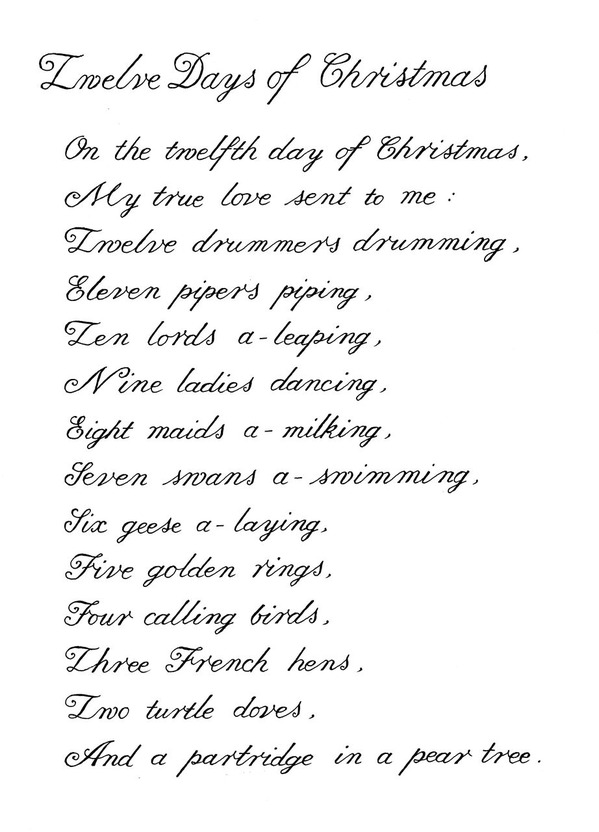 Twelve Days of Christmas
On the twelfth day of Christmas,
My true love sent to me :
Twelve drummers drumming,
Eleven pipers piping,
Ten lords a-leaping,
Nine ladies dancing,
Eight maids a-milking,
Seven swans a-swimming,
Six geese a-laying,
Five golden rings,
Four calling birds,
Three French hens,
Two turtle doves,
And a partridge in a pear tree.